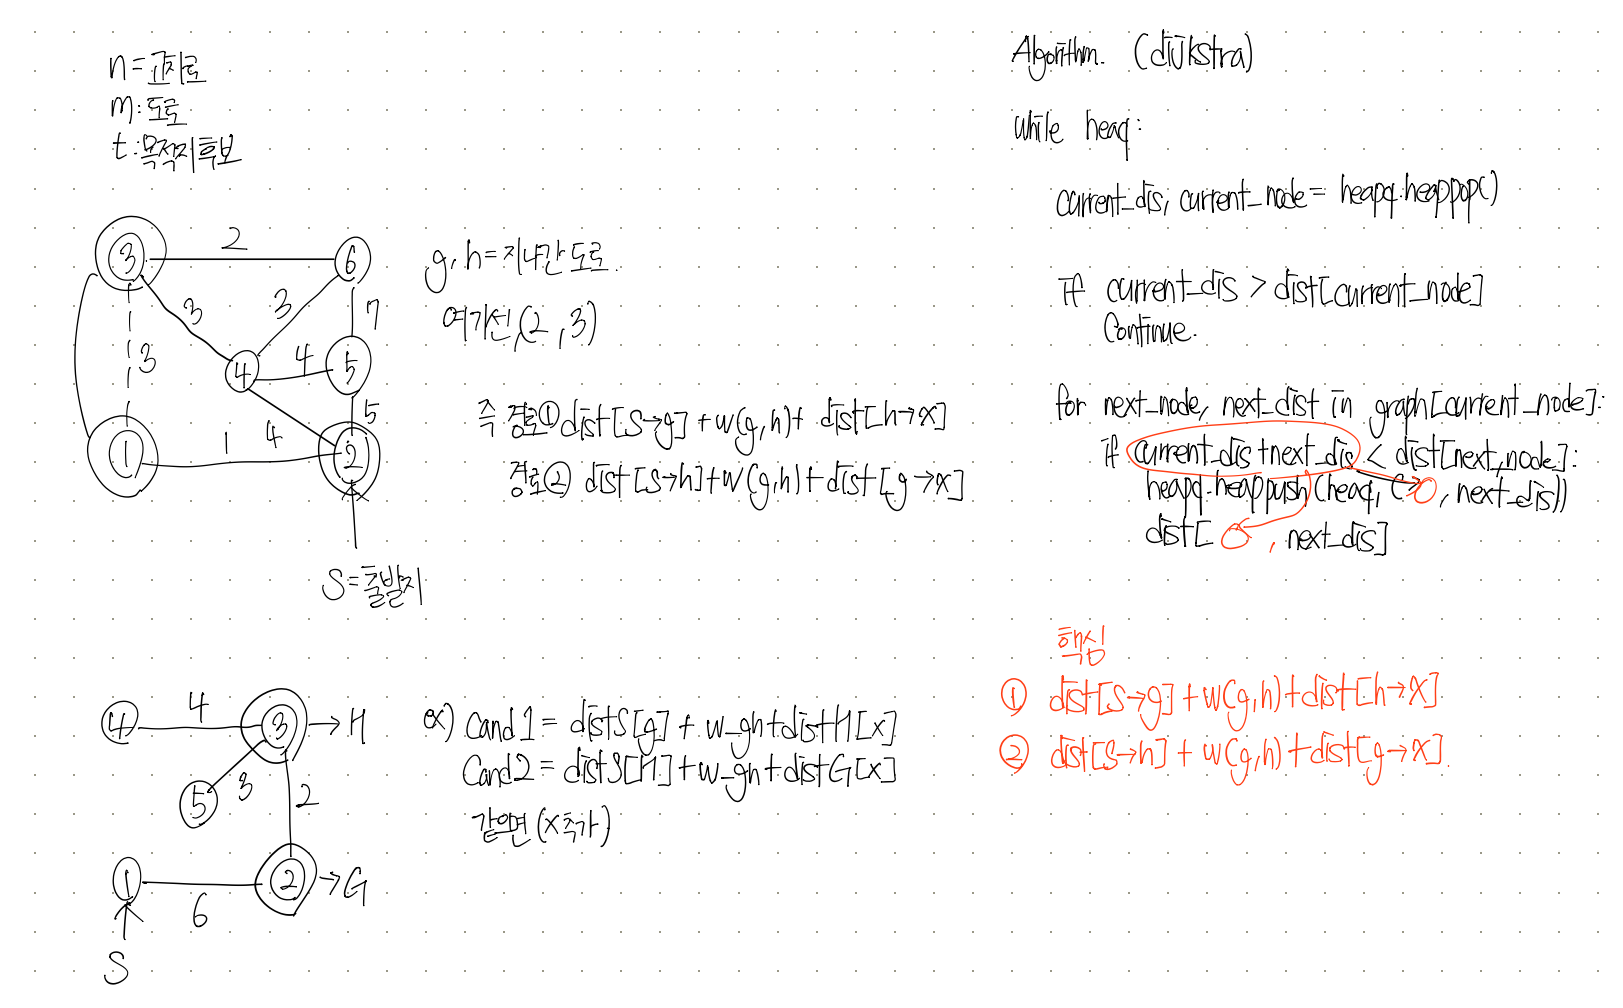 n=교차로
m:도로
t:목적지후보
3
2
6
3
3
7
3
4
4
5
5
1
1
4
2
S=출발지
g,h=지나간 도로.
여기선,(2,3)
즉 경로① dist[S→g]+w(g,h)+ dist[h→x]
경로② dist[S→h]+w(g,h)+dist[g→x]
4
4
3
→H
5
3
2
1
6
2
→G
S
ex) Cand1= distS[g] + w_gh+distH[x]
Cand2= distS[H]+w_gh+distG[x]
같으면(x추가)
Algorithm. (dijkstra)
while heaq:
current_dis, current_node= heapq.heappop()
if current_dis > dist[current_node]
Continue.
for next_node, next_dist in graph[current_node]:
if current_dis+next_dis < dist[next_node]:
heapq.heappush(heaq, ( , next_dis))
dist[ , next_dis]
핵심
① dist[S→g]+w(g,h)+dist[h→x]
② dist[S→h] + w(g,h)+dist[g→x].